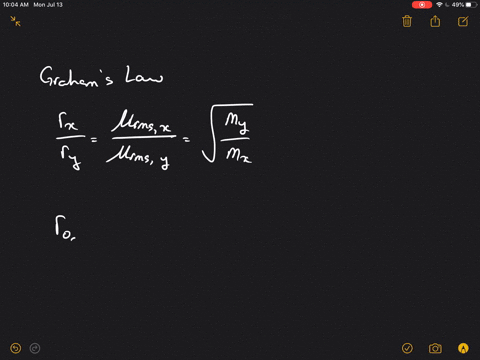 10:04 AM Mon Jul 13
49%
Graham's Law
r_x / r_y = μ_rms, x / μ_rms, y = √(m_y / m_x)
r_o.